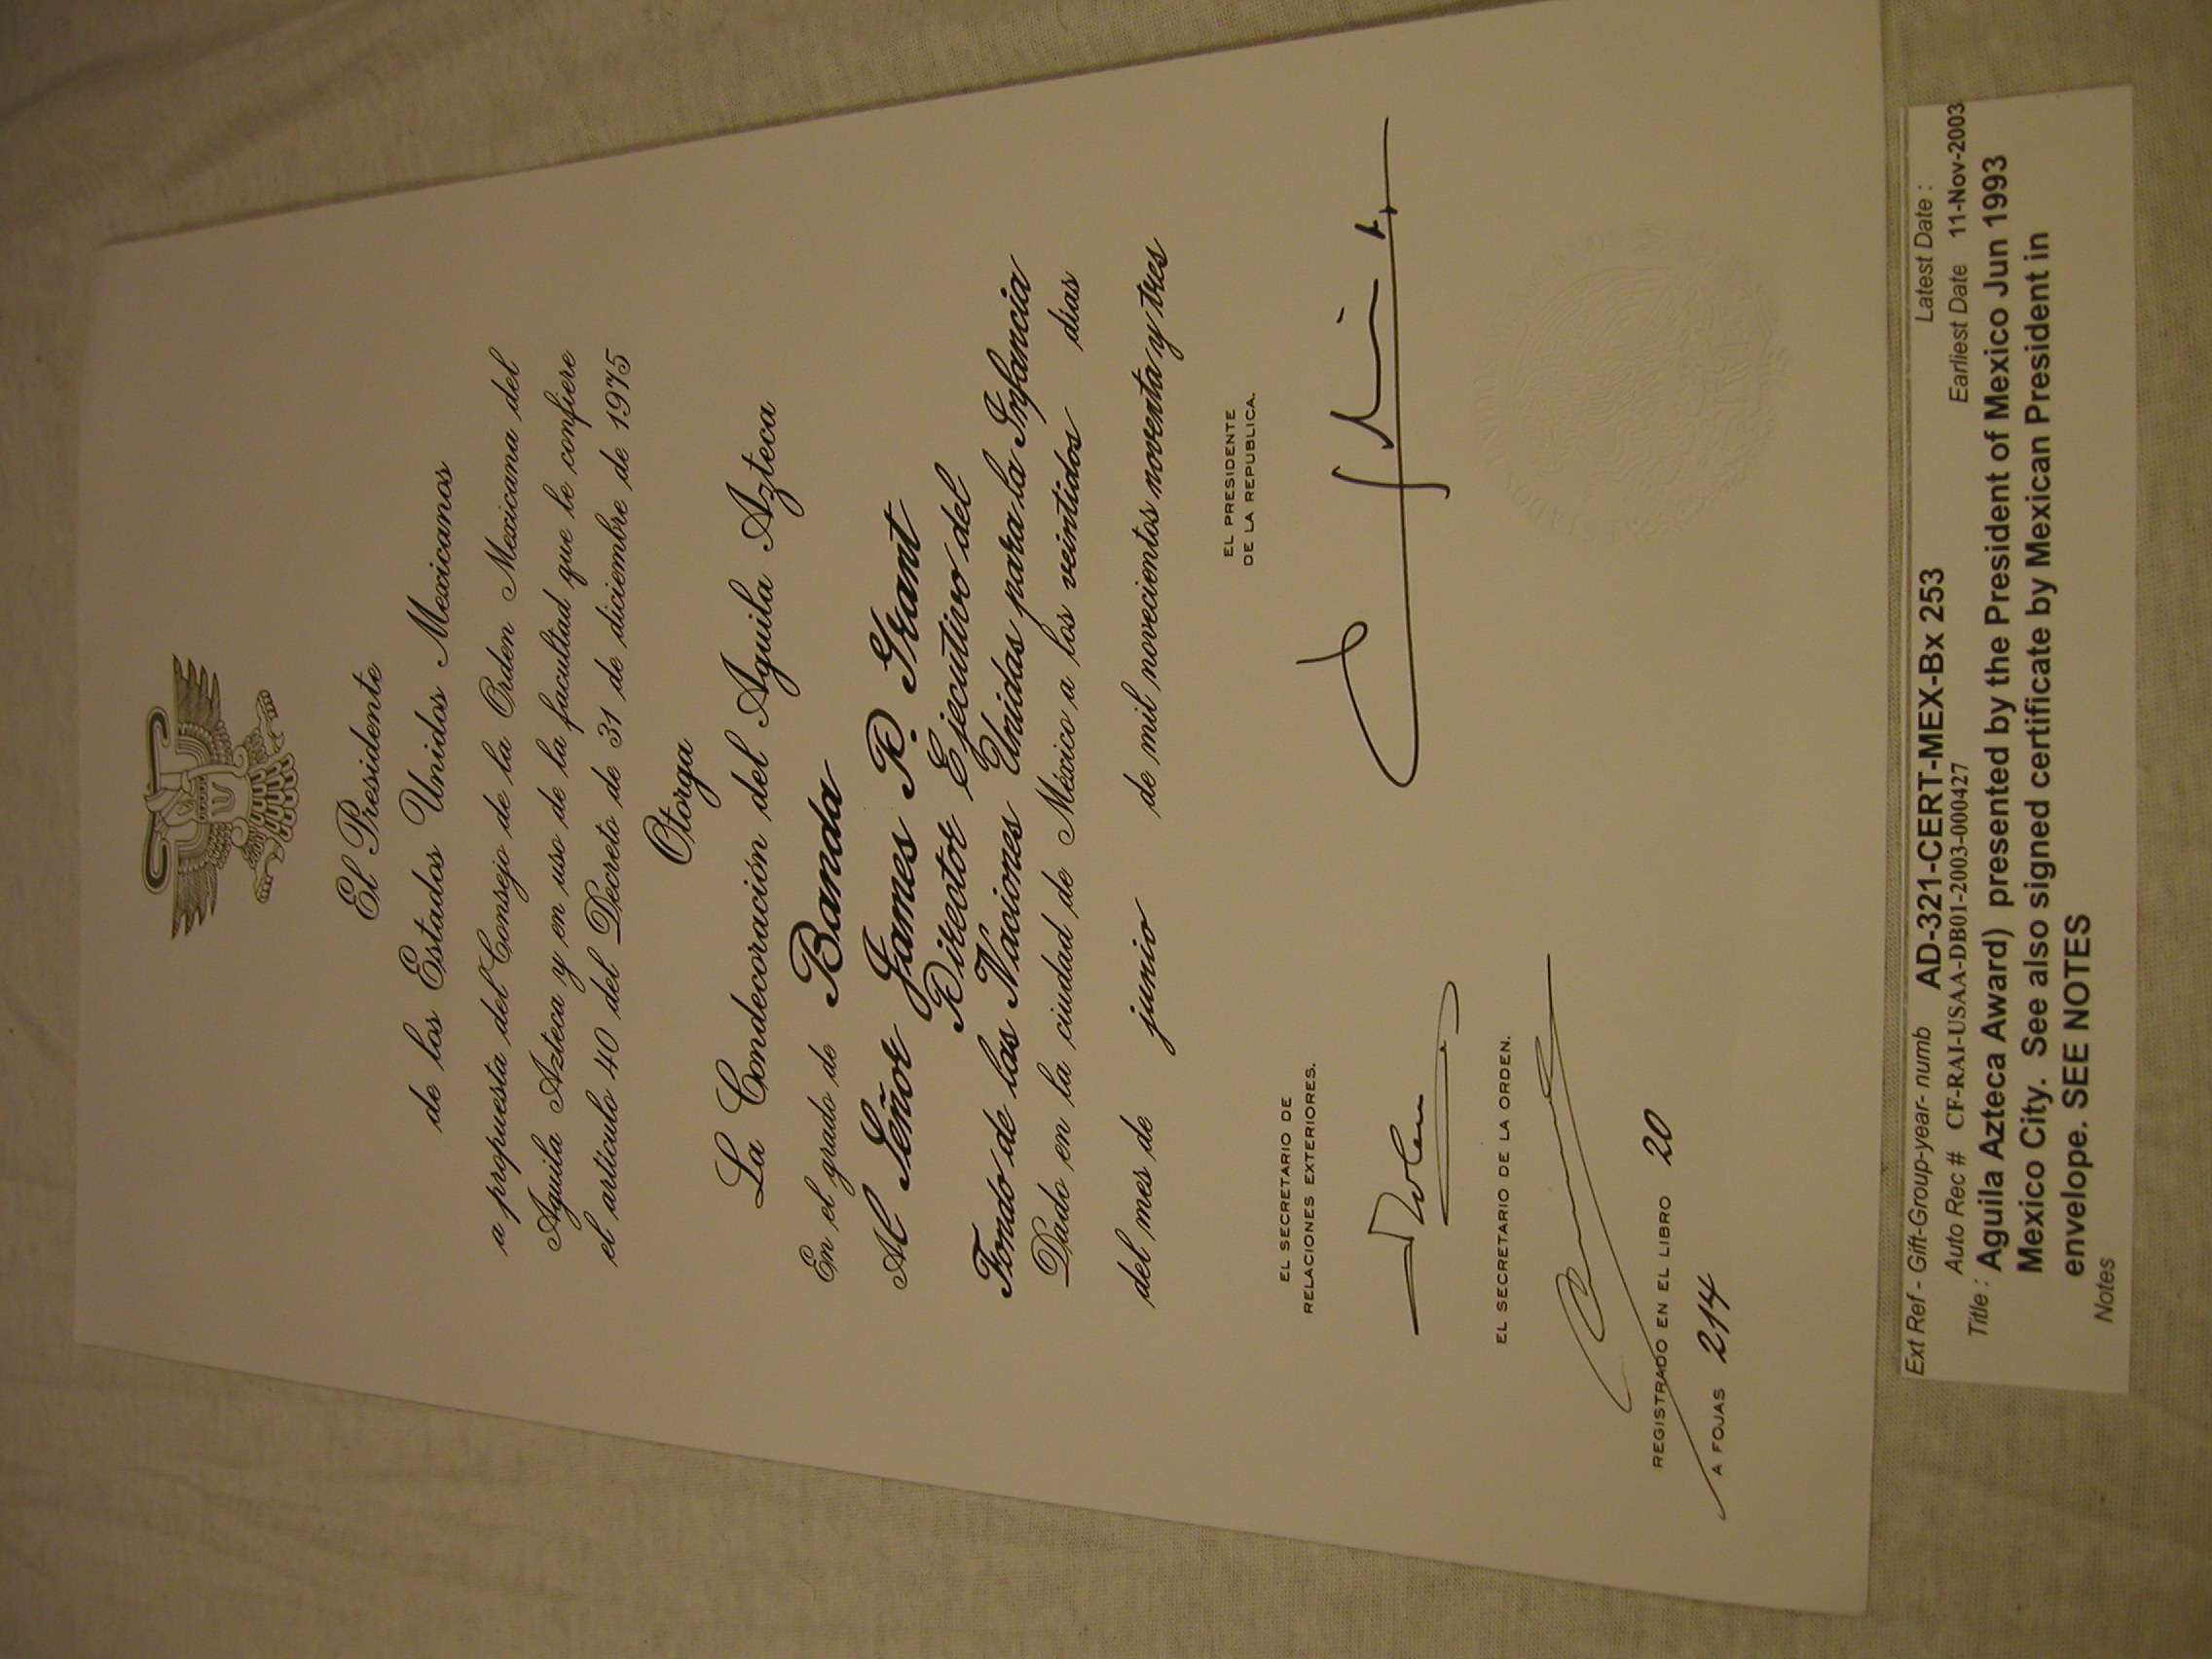 El Presidente
de los Estados Unidos Mexicanos
a propuesta del Consejo de la Orden Mexicana del
Aguila Azteca y en uso de la facultad que le confiere
el artículo 40 del Decreto de 31 de diciembre de 1975
Otorga
La Condecoración del Aguila Azteca
En el grado de Banda
Al Señor James P. Grant
Director Ejecutivo del
Fondo de las Naciones Unidas para la Infancia
Dado en la ciudad de México a los veintidos días
del mes de junio de mil novecientos noventa y tres
EL PRESIDENTE
DE LA REPUBLICA.
EL SECRETARIO DE
RELACIONES EXTERIORES.
EL SECRETARIO DE LA ORDEN.
REGISTRADO EN EL LIBRO 20
A FOJAS 214
Ext Ref - Gift-Group-year- numb AD-321-CERT-MEX-Bx 253 Latest Date :
Auto Rec # CF-RAI-USAA-DB01-2003-000427 Earliest Date 11-Nov-2003
Title : Aguila Azteca Award) presented by the President of Mexico Jun 1993
Mexico City. See also signed certificate by Mexican President in
envelope. SEE NOTES
Notes